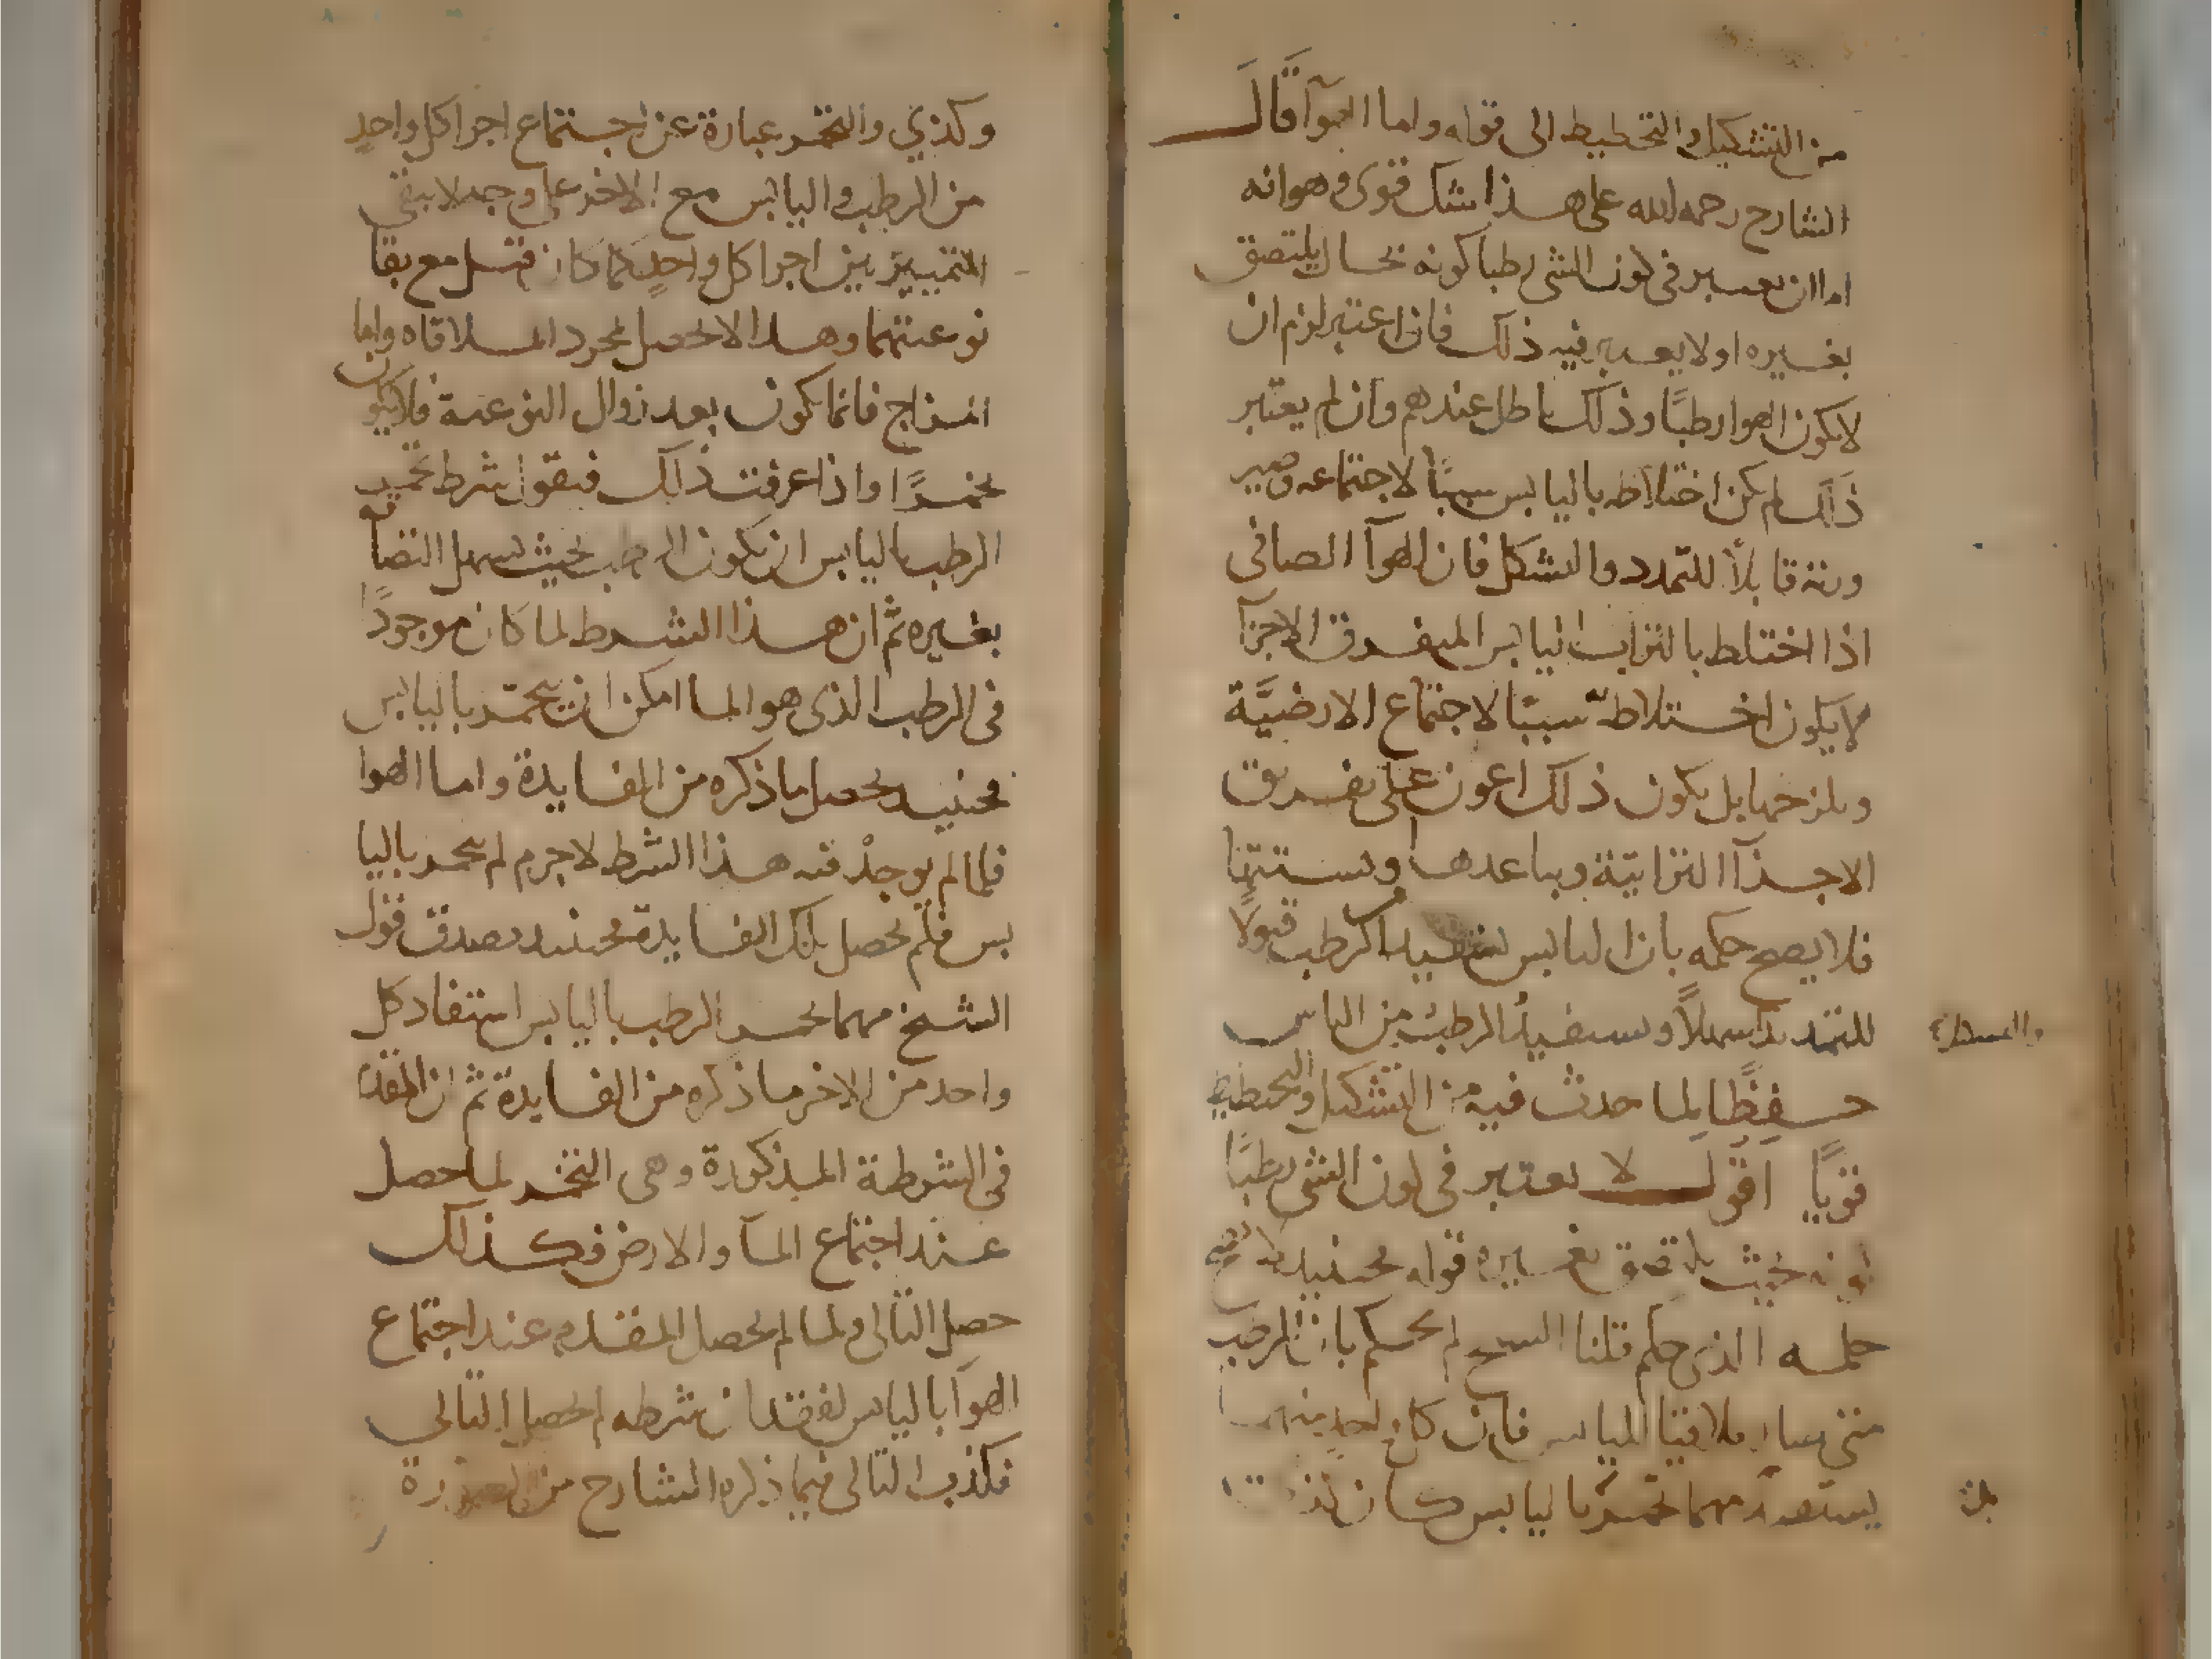 من التشكيل والتخطيط الى قوله واما الهوآ قَالَ
الشارح رحمه الله على هذا شك قوى وهو انه
اما ان يعتبر فى كون الشى رطبا كونه بحال يلتصق
بغيره او لا يعتبر فيه ذلك فان اعتبر لزم ان
لا يكون الهوا رطبًا وذلك باطل عندهم وان لم يعتبر
ذلك لم يكن اختلاطه باليابس سببًا لاجتماعه وصير
ورته قابلاً للتمدد والتشكل فان الهوآ الصافى
اذا اختلط بالتراب اليابس المتفرق الاجزآ
لا يكون اختلاطه سببًا لاجتماع الارضيَّة
وتلزجها بل يكون ذلك اعون على تفريق
الاجزآ الترابية وتباعدها وتشتتها
فلا يصح حكمه بان اليابس يستفيد من الرطب قبولا
للتمديد سهلاً ويستفيد الرطب من اليابس
حِفِظًا لِما حدث فيه من التشكيل والتخطيط
قويًا اقول لا يعتبر فى كون الشى رطبًا
كونه بحيث يلتصق بغيره قوله فحينيذ لا يصح
حكمه الذى حكم قلنا الشيخ لم يحكم بان الرطب
متى صار ملاقيا لليابس فان كل واحد منهما
يستفيد مهما تخمر باليابس كان
والتشكل
بل
وكذى والتخمر عبارة عن اجتماع اجزا كل واحدٍ
من الرطب واليابس مع الاخر على وجه لا يبقى
التمييز بين اجزا كل واحدٍ كما كان قبل مع بقا
نوعيتهما وهذا لا يحصل بمجرد الملاقاه واما
المزاج فانما يكون بعد زوال النوعية فلا يكون
تخمرًا واذا عرفت ذلك فنقول شرط تخمر
الرطب باليابس ان يكون الرطب بحيث يسهل التصاقه
بغيره ثم ان هذا الشرط لما كان موجودًا
فى الرطب الذى هو الما امكن ان يتخمر باليابس
فحينيذ يحصل ما ذكره من الفايدة واما الهوا
فلما لم يوجد فيه هذا الشرط لا جرم لم يتخمر باليا
بس فلم يحصل تلك الفايدة فحينيذ يصدق قول
الشيخ مهما تخمر الرطب باليابس استفاد كل
واحد من الاخر ما ذكره من الفايدة ثم ان المقدم
فى الشرطية المذكورة وهى التخمر لما حصل
عند اجتماع المآ والارض فكذلك
حصل التالى ولما لم يحصل المقدم عند اجتماع
الهوآ باليابس لفقدان شرطه لم يحصل التالى
فكذب التالى فيما ذكره الشارح من الصورة